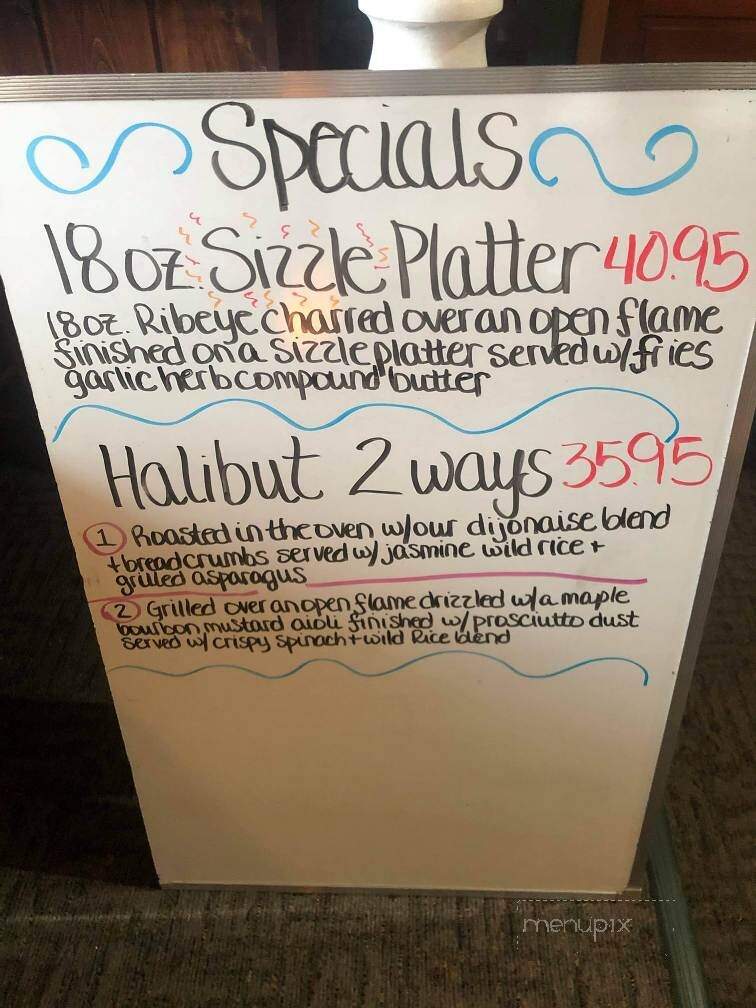 Specials
18oz. Sizzle Platter 40.95
18oz. Ribeye charred over an open flame
finished on a sizzle platter served w/fries
garlic herb compound butter
Halibut 2 ways 35.95
1 Roasted in the oven w/our dijonaise blend
+breadcrumbs served w/ jasmine wild rice +
grilled asparagus
2 Grilled over an open flame drizzled w/a maple
bourbon mustard aioli finished w/prosciutto dust
served w/ crispy spinach+wild Rice blend
menupix